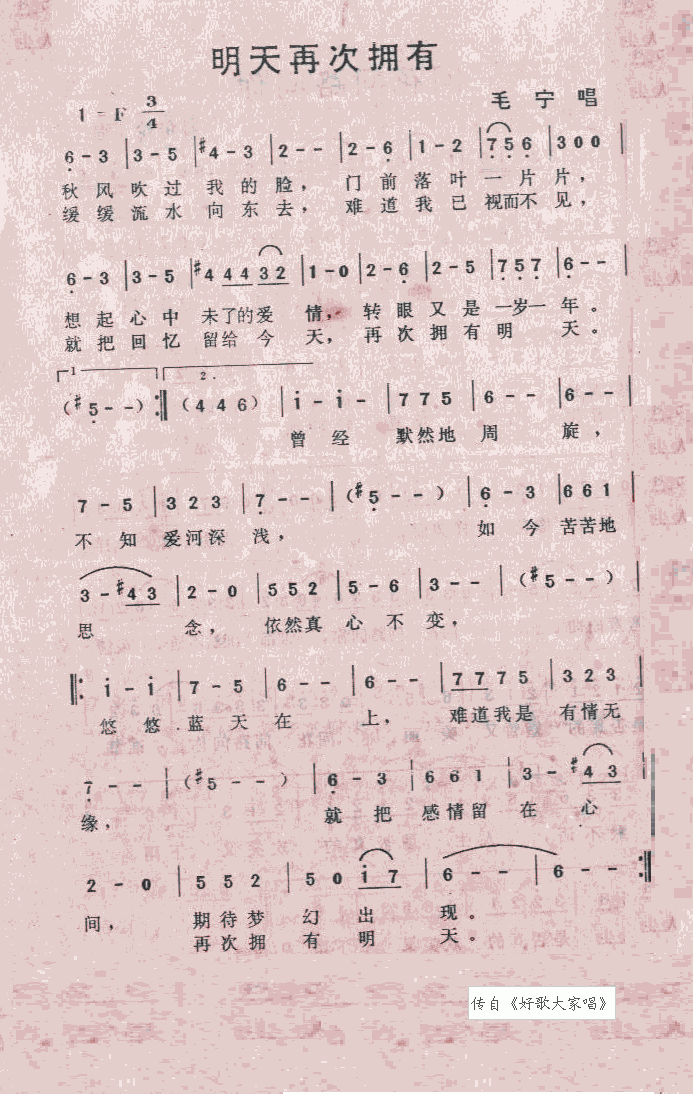 明天再次拥有
毛宁唱
1=F 3/4
6-3 | 3-5 | #4-3 | 2-- | 2-6 | 1-2 | 756 | 300 |
秋风吹过我的脸，门前落叶一片片，
缓缓流水向东去，难道我已视而不见，
6-3 | 3-5 | #4 44 32 | 1-0 | 2-6 | 2-5 | 757 | 6-- |
想起心中未了的爱情，转眼又是一岁一年。
就把回忆留给今天，再次拥有明天。
1 2.
(#5--) :‖ (446) | i-i- | 775 | 6-- | 6-- |
曾经默然地周旋，
7-5 | 323 | 7-- | (#5--) | 6-3 | 661 |
不知爱河深浅，如今苦苦地
3-#43 | 2-0 | 552 | 5-6 | 3-- | (#5--) |
思念，依然真心不变，
‖: i-i | 7-5 | 6-- | 6-- | 7775 | 323 |
悠悠蓝天在上，难道我是有情无
7-- | (#5--) | 6-3 | 661 | 3-#43 |
缘，就把感情留在心
2-0 | 552 | 50i7 | 6-- | 6-- :‖
间，期待梦幻出现。
再次拥有明天。
传自《好歌大家唱》